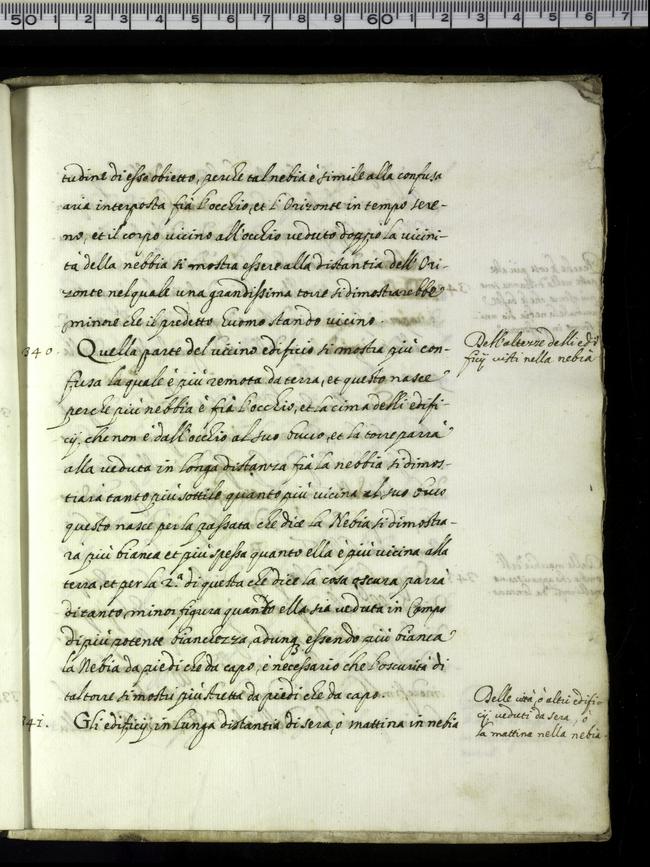 tudine di esso obietto, perche tal nebia è simile alla confusa
aria interposta frà l'occhio, et l'Orizonte in tempo sere-
no, et il corpo vicino all'occhio veduto doppo la vicini-
tà della nebbia si mostra essere alla distantia dell'Ori-
zonte nel quale una grandissima torre si dimostrarebbe
minore che il predetto huomo stando vicino.
340. Quella parte del vicino edificio si mostra più con-
fusa la quale è più remota da terra, et questo nasce
perche più nebbia è frà l'occhio, et la cima delli edifi-
cij, che non è dall'occhio al suo buco, et la torre parrà
alla veduta in longa distanza frà la nebbia si dimos-
trarà tanto più sottile quanto più vicina al suo buco
questo nasce per la passata che dice la Nebia si dimostra-
rà più bianca et più spessa quanto ella è più vicina alla
terra, et per la 2.ª di questa che dice la cosa oscura parrà
di tanto minor figura quanto ella sia veduta in Campo
di più potente bianchezza, adunq. essendo più bianca
la Nebia da piedi che da capo, è necessario che l'oscurità di
tal torre si mostri più stretta da piedi che da capo.
341. Gli edificij in lunga distantia di sera, ò mattina in nebia
Dell'alterze delli edi
ficij visti nella nebia
Delle città, ò altri edifi-
cij veduti da sera, ò
la mattina nella nebia.